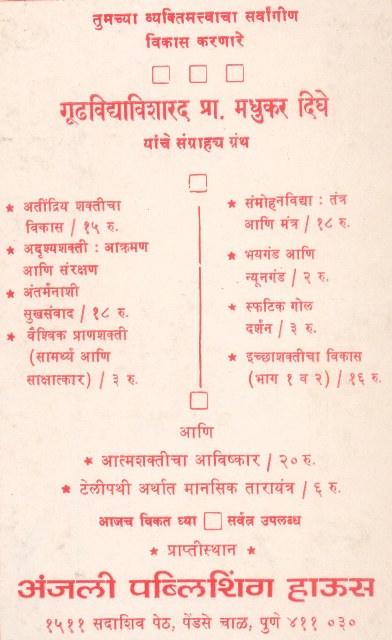 तुमच्या व्यक्तिमत्त्वाचा सर्वांगीण
विकास करणारे
गूढविद्याविशारद प्रा. मधुकर दिघे
यांचे संग्राह्य ग्रंथ
★ अतींद्रिय शक्तीचा
विकास / १५ रु.
★ अदृश्यशक्ती : आक्रमण
आणि संरक्षण
★ अंतर्मनाशी
सुखसंवाद / १८ रु.
★ वैश्विक प्राणशक्ती
(सामर्थ्य आणि
साक्षात्कार) / ३ रु.
★ संमोहनविद्या : तंत्र
आणि मंत्र / १८ रु.
★ भयगंड आणि
न्यूनगंड / २ रु.
★ स्फटिक गोल
दर्शन / ३ रु.
★ इच्छाशक्तीचा विकास
(भाग १ व २) / १६ रु.
आणि
★ आत्मशक्तीचा आविष्कार / २० रु.
★ टेलीपथी अर्थात मानसिक तारायंत्र / ६ रु.
आजच विकत घ्या सर्वत्र उपलब्ध
★ प्राप्तीस्थान ★
अंजली पब्लिशिंग हाऊस
१५११ सदाशिव पेठ, पेंडसे चाळ, पुणे ४११ ०३०